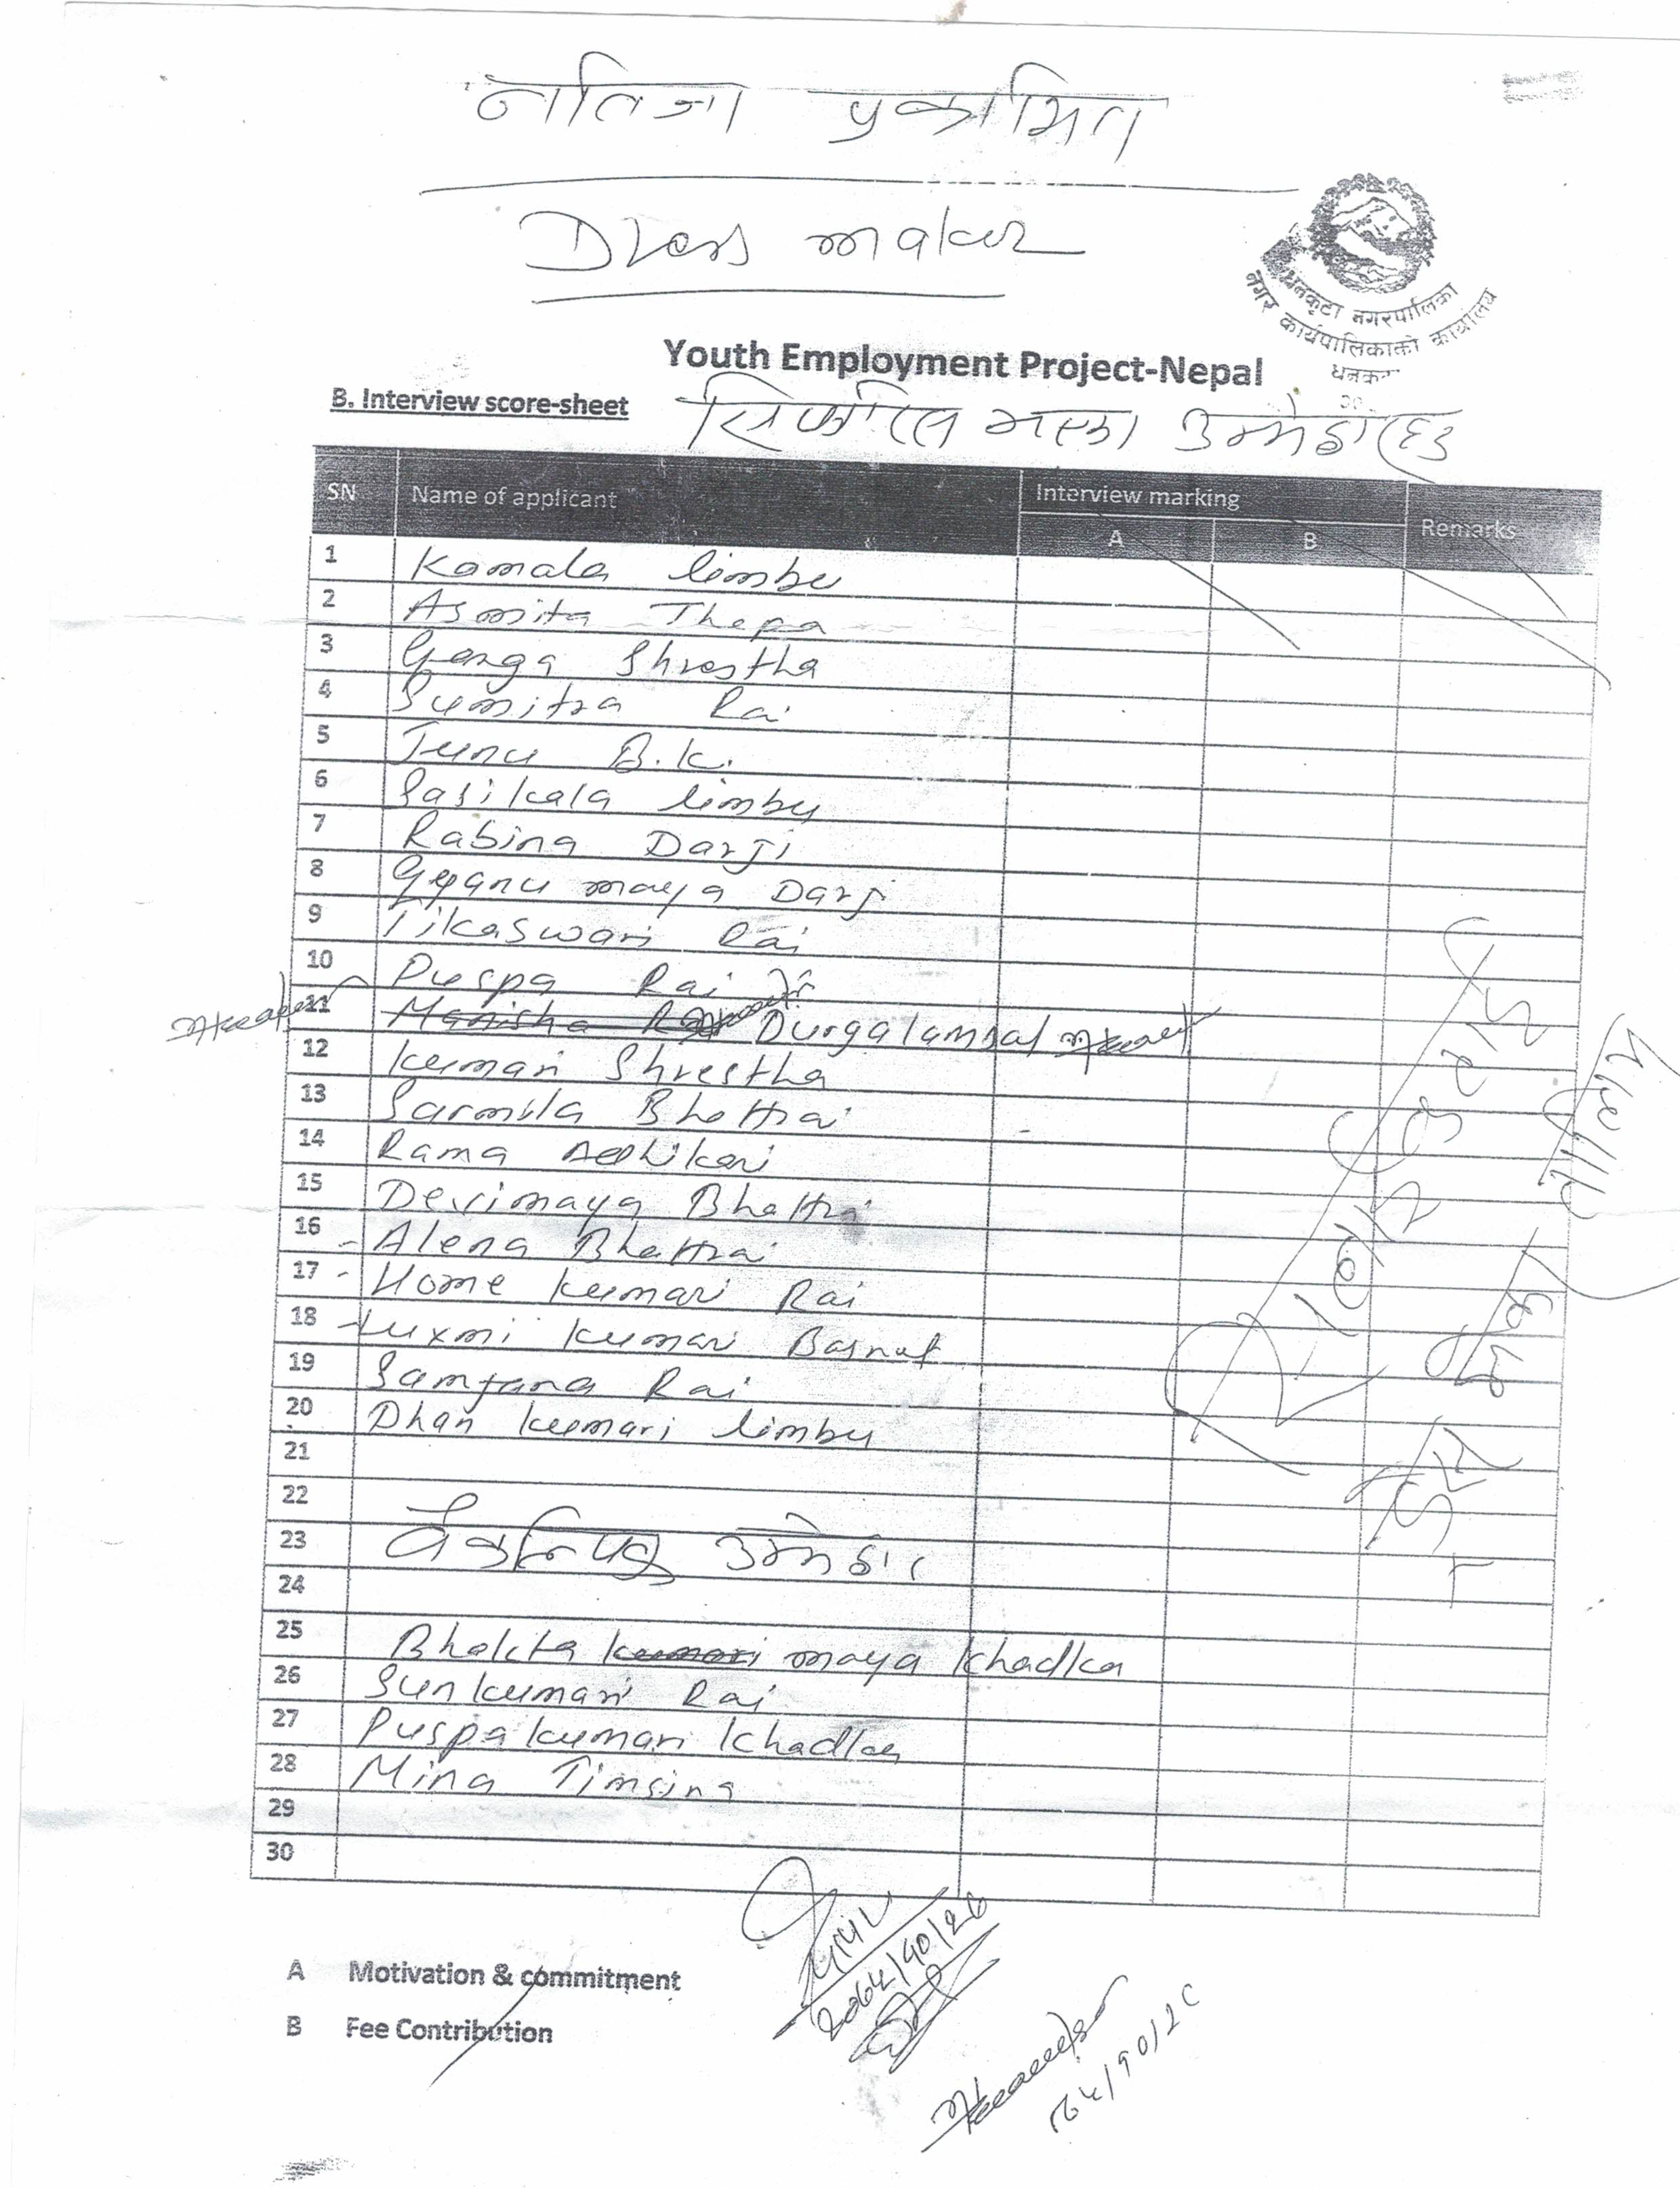 नतिजा प्रकाशित
Dress maker
धनकुटा नगरपालिका
नगर कार्यपालिकाको कार्यालय
Youth Employment Project-Nepal
B. Interview score-sheet
सिफारिस भएका उम्मेद्वारहरु
SN Name of applicant Interview marking Remarks
A B
1 Kamala limbu
2 Asmita Thapa
3 Ganga Shrestha
4 Sumitra Rai
5 Junu B.K.
6 Sasikala limbu
7 Rabina Darji
8 Gyanu maya Darji
9 Tikaswari Rai
10 Puspa Rai
11 Manisha Durga lamsal
12 kumari Shrestha
13 Sarmila Bhattrai
14 Rama Adhikari
15 Devimaya Bhattrai
16 Alena Bhattrai
17 Home kumari Rai
18 Luxmi kumari Basnet
19 Samjana Rai
20 Dhan kumari limbu
21
22
23 वैकल्पिक उमेद्वार
24
25 Bhakta kumari maya khadka
26 Sunkumari Rai
27 Puspa kumari khadka
28 Mina Timsina
29
30
A Motivation & commitment
B Fee Contribution